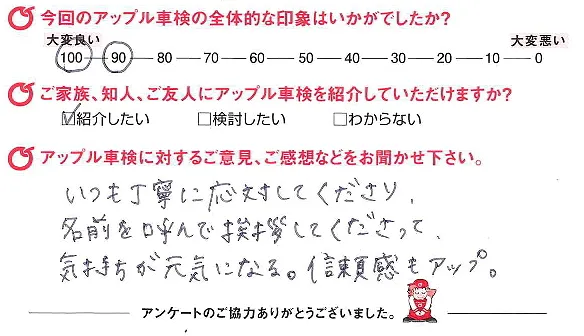 今回のアップル車検の全体的な印象はいかがでしたか?
大変良い 大変悪い
100 90 80 70 60 50 40 30 20 10 0
ご家族、知人、ご友人にアップル車検を紹介していただけますか?
☑紹介したい □検討したい □わからない
アップル車検に対するご意見、ご感想などをお聞かせ下さい。
いつも丁寧に応対してくださり、
名前を呼んで挨拶してくださって、
気持ちが元気になる。信頼感もアップ。
アンケートのご協力ありがとうございました。